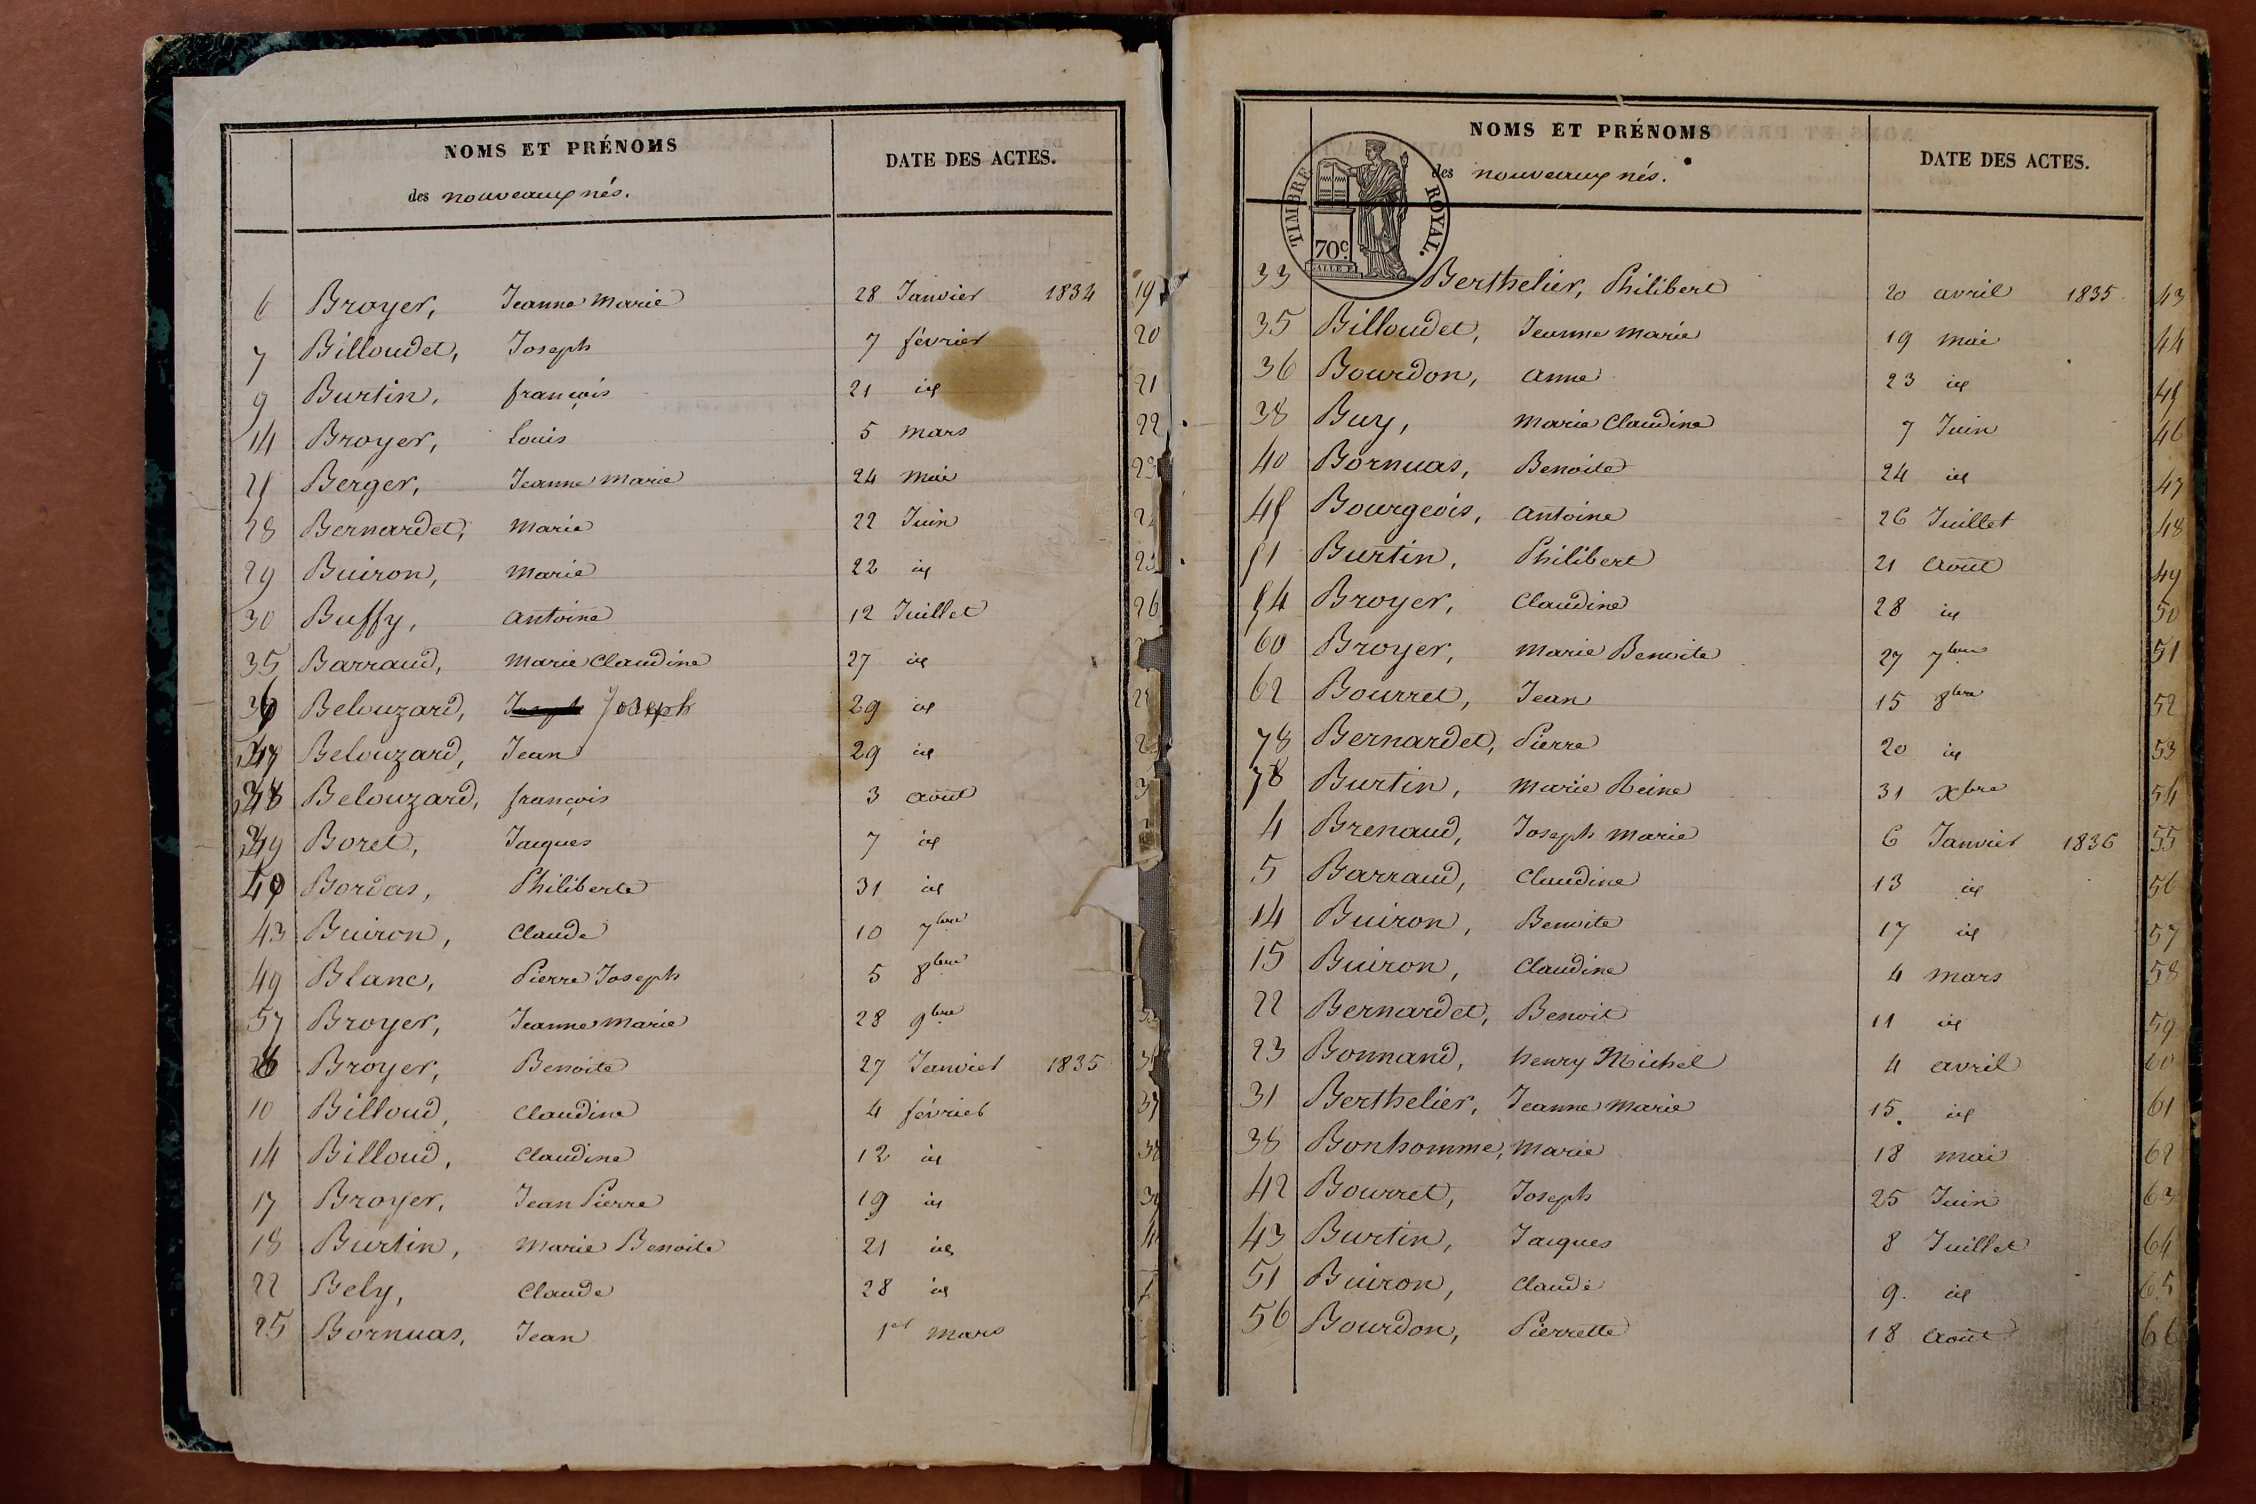 NOMS ET PRÉNOMS
des nouveaux nés.
DATE DES ACTES.
6 Broyer, Jeanne Marie 28 Janvier 1834 19
7 Billoudet, Joseph 7 février 20
9 Burtin, françois 21 id 21
14 Broyer, Louis 5 mars 22
25 Berger, Jeanne Marie 24 mai 23
28 Bernardet, Marie 22 Juin
29 Buiron, Marie 22 id 25
30 Buffy, antoine 12 Juillet 26
35 Barraud, Marie Claudine 27 id
36 Belouzard, Joseph 29 id
37 Belouzard, Jean 29 id
38 Belouzard, françois 3 août
39 Boret, Jaques 7 id
40 Bordas, Philiberte 31 id
43 Buiron, Claude 10 7bre
49 Blanc, Pierre Joseph 5 8bre
57 Broyer, Jeanne Marie 28 9bre
Broyer, Benoite 27 Janvier 1835
10 Billoud, Claudine 4 février 37
14 Billoud, Claudine 12 id 38
17 Broyer, Jean Pierre 19 id 39
18 Burtin, Marie Benoite 21 id
22 Bely, Claude 28 id
25 Bornuas, Jean 1er mars
NOMS ET PRÉNOMS
des nouveaux nés.
DATE DES ACTES.
TIMBRE ROYAL.
70c.
33 Berthelier, Philibert 20 avril 1835. 43
35 Billoudet, Jeanne Marie 19 mai 44
36 Bourdon, anne 23 id 45
38 Buy, Marie Claudine 7 Juin 46
40 Bornuas, Benoite 24 id 47
45 Bourgeois, antoine 26 Juillet 48
51 Burtin, Philibert 21 Août 49
54 Broyer, Claudine 28 id 50
60 Broyer, Marie Benoite 27 7bre 51
62 Bourret, Jean 15 8bre 52
78 Bernardet, Pierre 20 id 53
78 Burtin, Marie Reine 31 Xbre 54
4 Brenaud, Joseph Marie 6 Janvier 1836 55
5 Barraud, Claudine 13 id 56
14 Buiron, Benoite 17 id 57
15 Buiron, Claudine 4 mars 58
22 Bernardet, Benoit 11 id 59
23 Bonnand, henry Michel 4 avril 60
31 Berthelier, Jeanne Marie 15. id 61
38 Bonhomme, Marie 18 mai 62
42 Bourret, Joseph 25 Juin 63
43 Burtin, Jaques 8 Juillet 64
51 Buiron, Claude 9. id 65
56 Bourdon, Pierrette 18 Août 66